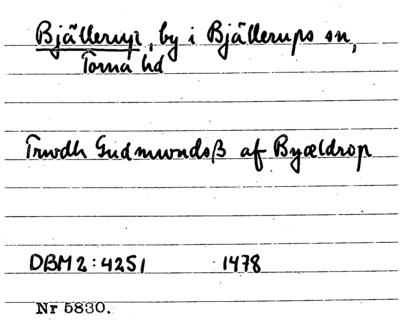 Bjällerup, by i Bjällerups sn,
Torna hd
Trwdh Gudmwndsß af Byældrop
DBM 2:4251 1478
Nr 5830.